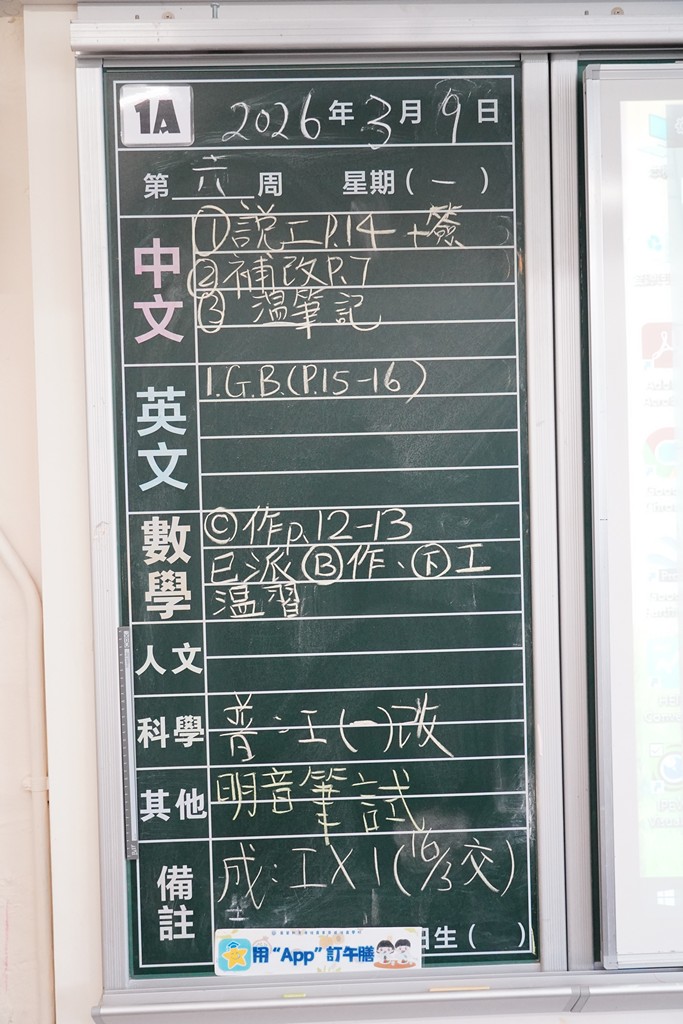 1A 2026年3月9日
第六周 星期(一)
中文
①説工P.14 +簽
②補改P.7
③ 温筆記
英文
1.G.B.(P.15-16)
數學
Ⓒ作p.12-13
已派Ⓑ作、㊦工
温習
人文
科學
普:工(一)改
其他
明音筆試
備註
成:工X1(16/3交)
生( )
用“App”訂午膳